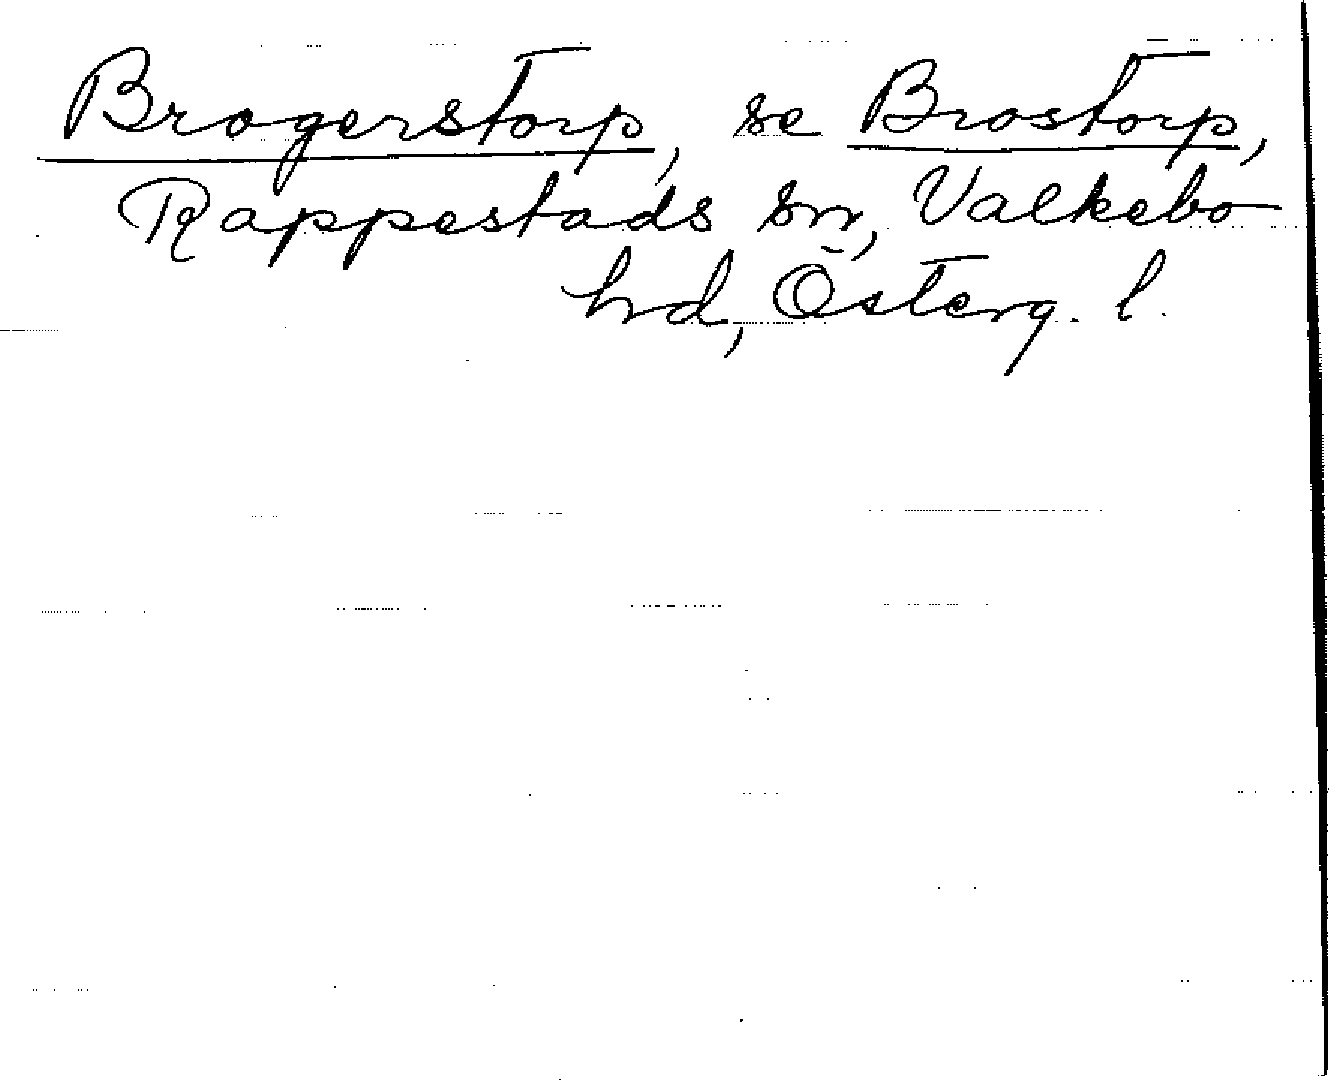 Brogerstorp, se Brostorp,
Rappestads sn, Valkebo
hd, Österg. l.